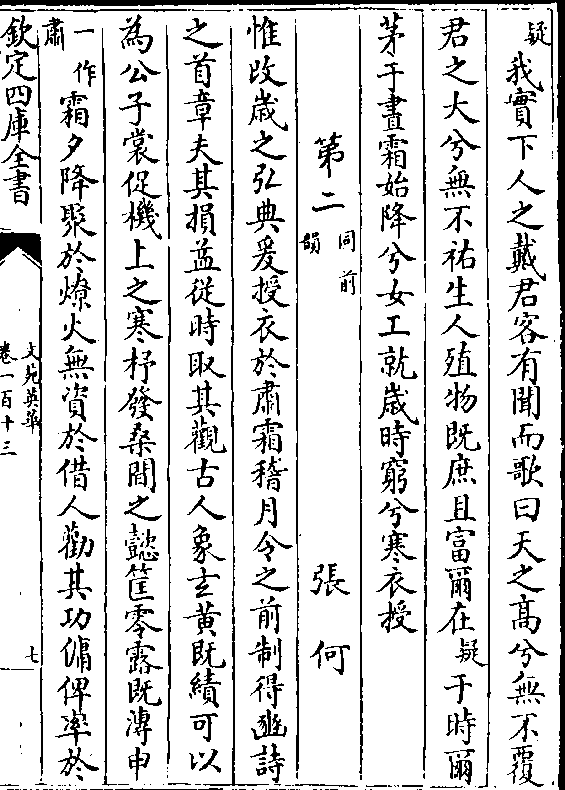 疑我實下人之戴君客有聞而歌曰天之髙兮無不覆
君之大兮無不祐生人殖物既庶且富爾在疑于時爾
茅于晝霜始降兮女工就歲時窮兮寒衣授
第二同前韻 張何
惟改歲之弘典爰授衣於肅霜稽月令之前制得豳詩
之首章夫其損益從時取其觀古人象玄黄既績可以
為公子裳促機上之寒杼發桑間之懿筐零露既漙申
肅一作霜夕降聚於燎火無資於借人勸其功傭俾率於
欽定四庫全書
文苑英華
卷一百十三
七